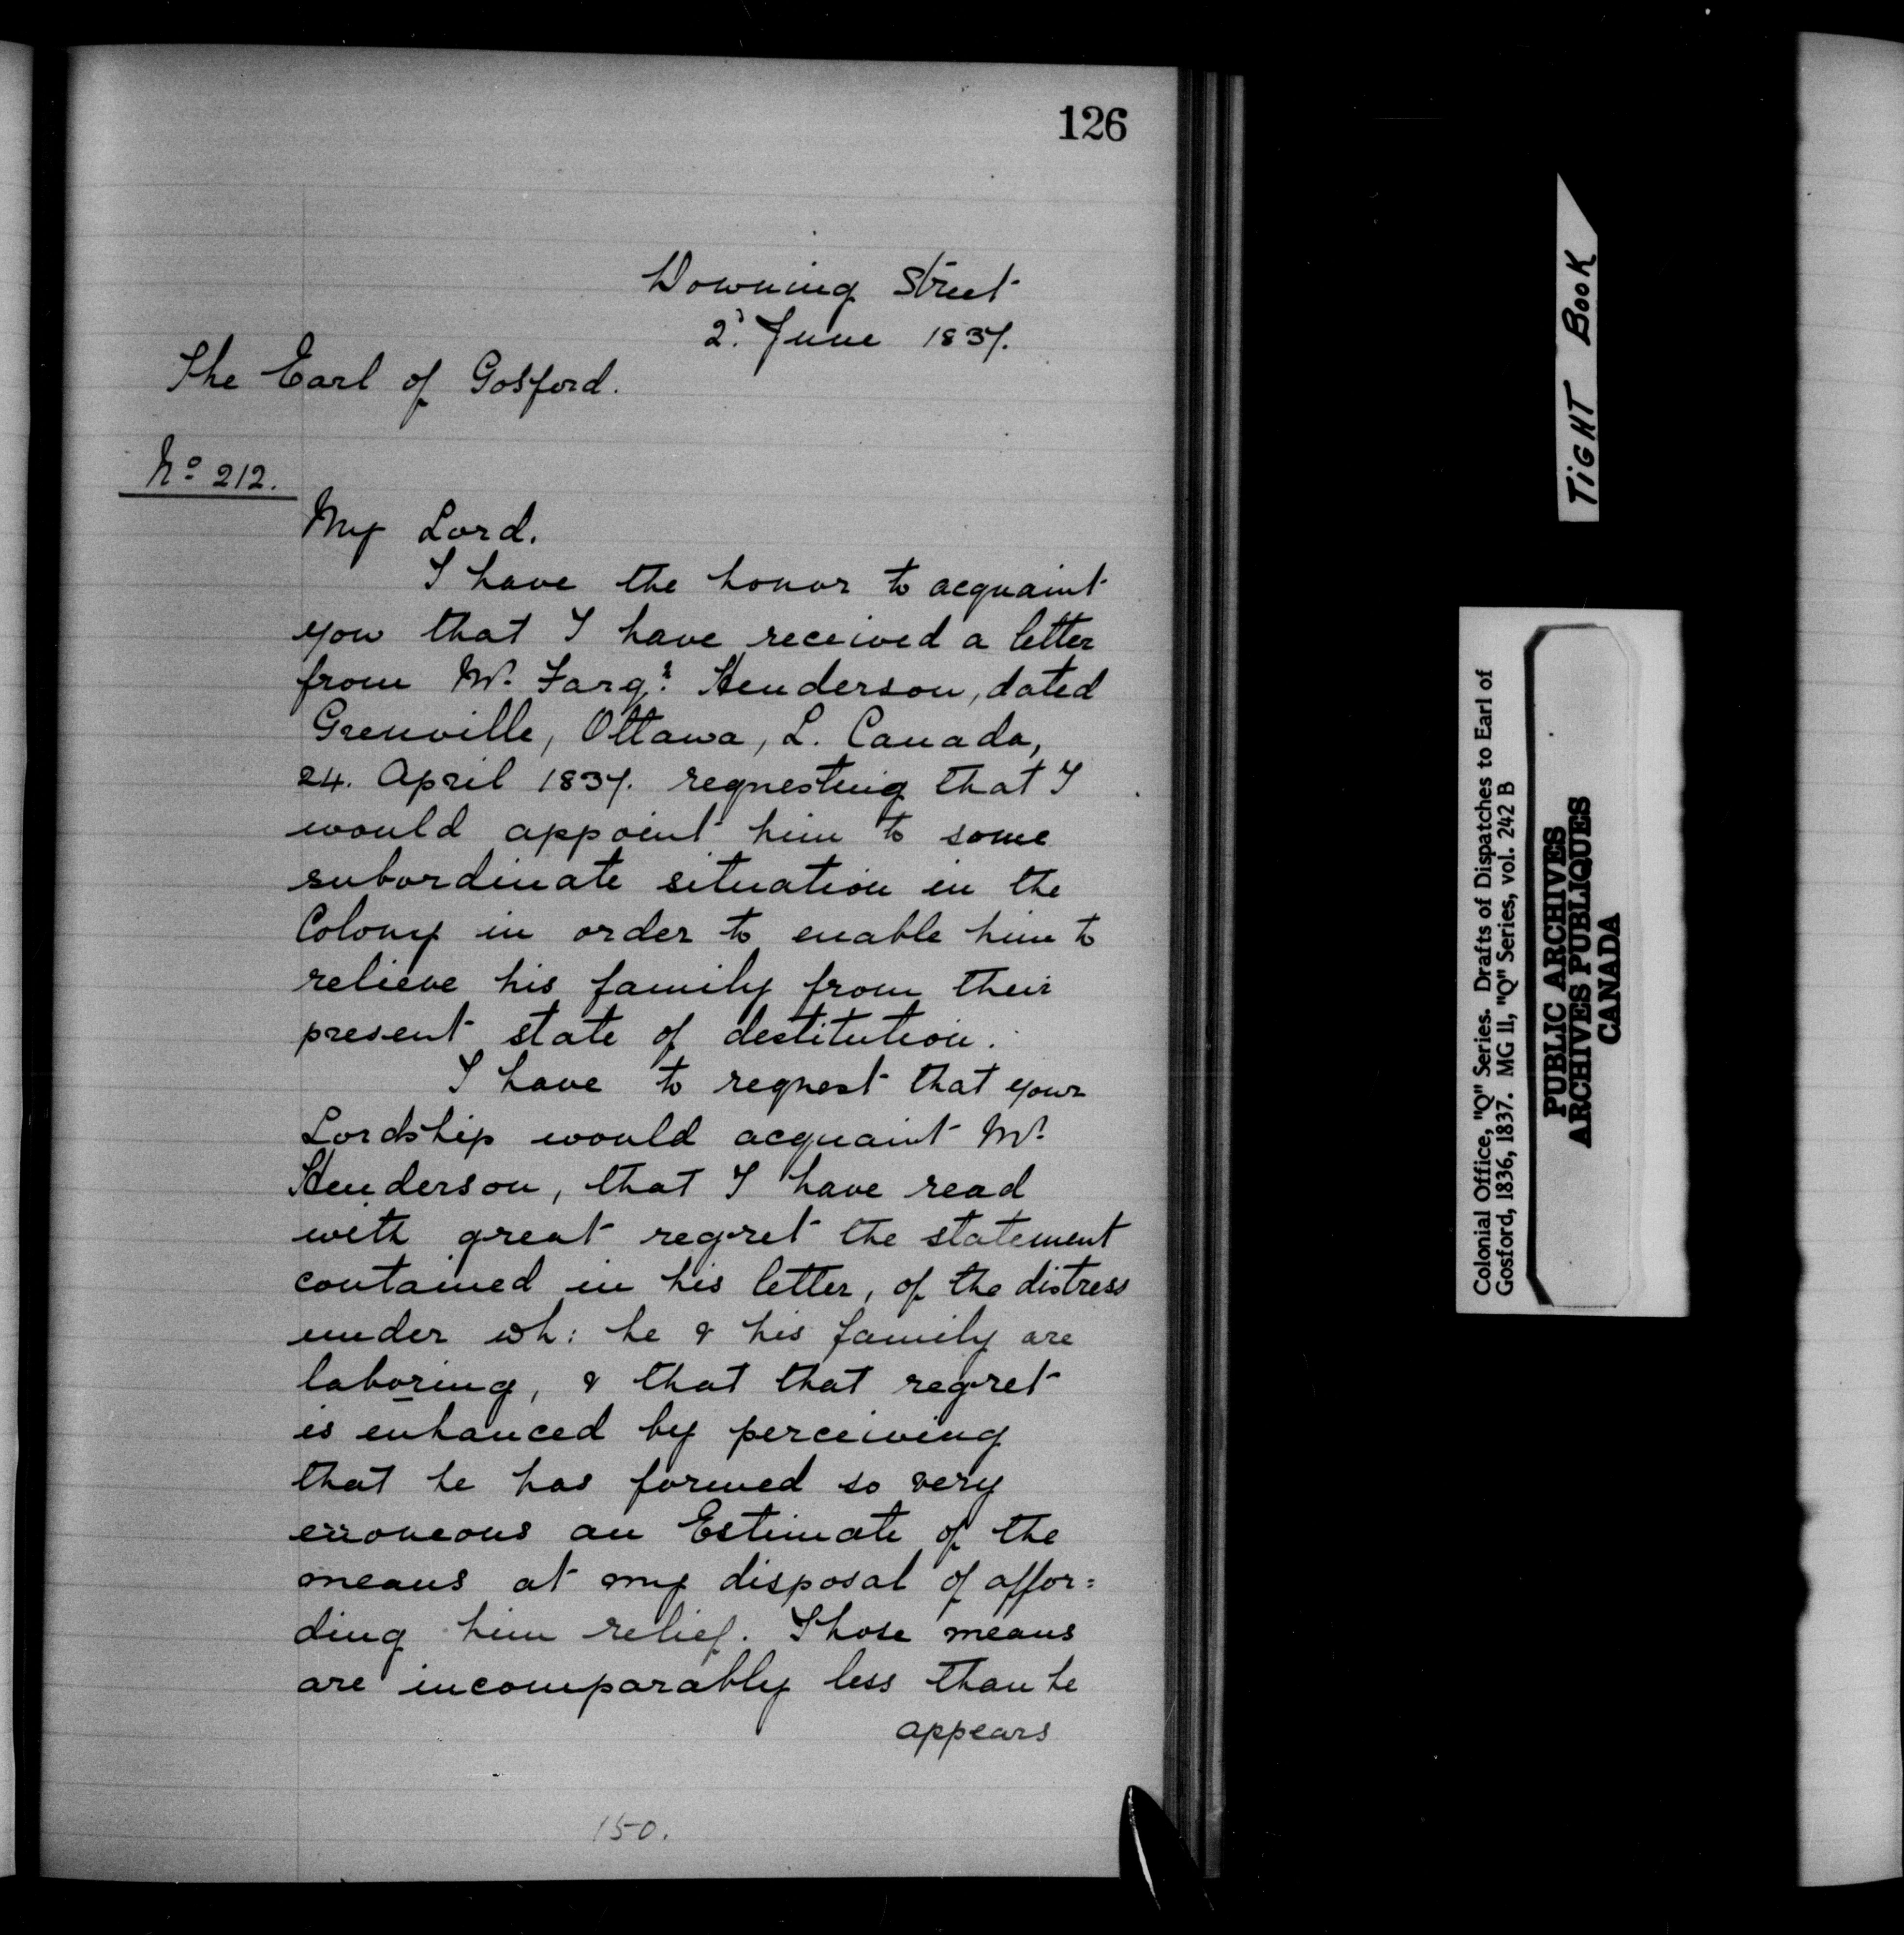 126
Downing Street
2d. June 1837.
The Earl of Gosford.
No 212.
My Lord.
I have the honor to acquaint
you that I have received a letter
from Mr. Farqr. Henderson, dated
Grenville, Ottawa, L. Canada,
24. April 1837. requesting that I
would appoint him to some
subordinate situation in the
Colony in order to enable him to
relieve his family from their
present state of destitution.
I have to request that your
Lordship would acquaint Mr.
Henderson, that I have read
with great regret the statement
contained in his letter, of the distress
under wh: he & his family are
laboring, & that that regret
is enhanced by perceiving
that he has formed so very
erroneous an Estimate of the
means at my disposal of affor=
ding him relief. Those means
are incomparably less than he
appears
150.
TIGHT BOOK
Colonial Office, "Q" Series. Drafts of Dispatches to Earl of
Gosford, 1836, 1837. MG 11, "Q" Series, vol. 242 B
PUBLIC ARCHIVES
ARCHIVES PUBLIQUES
CANADA